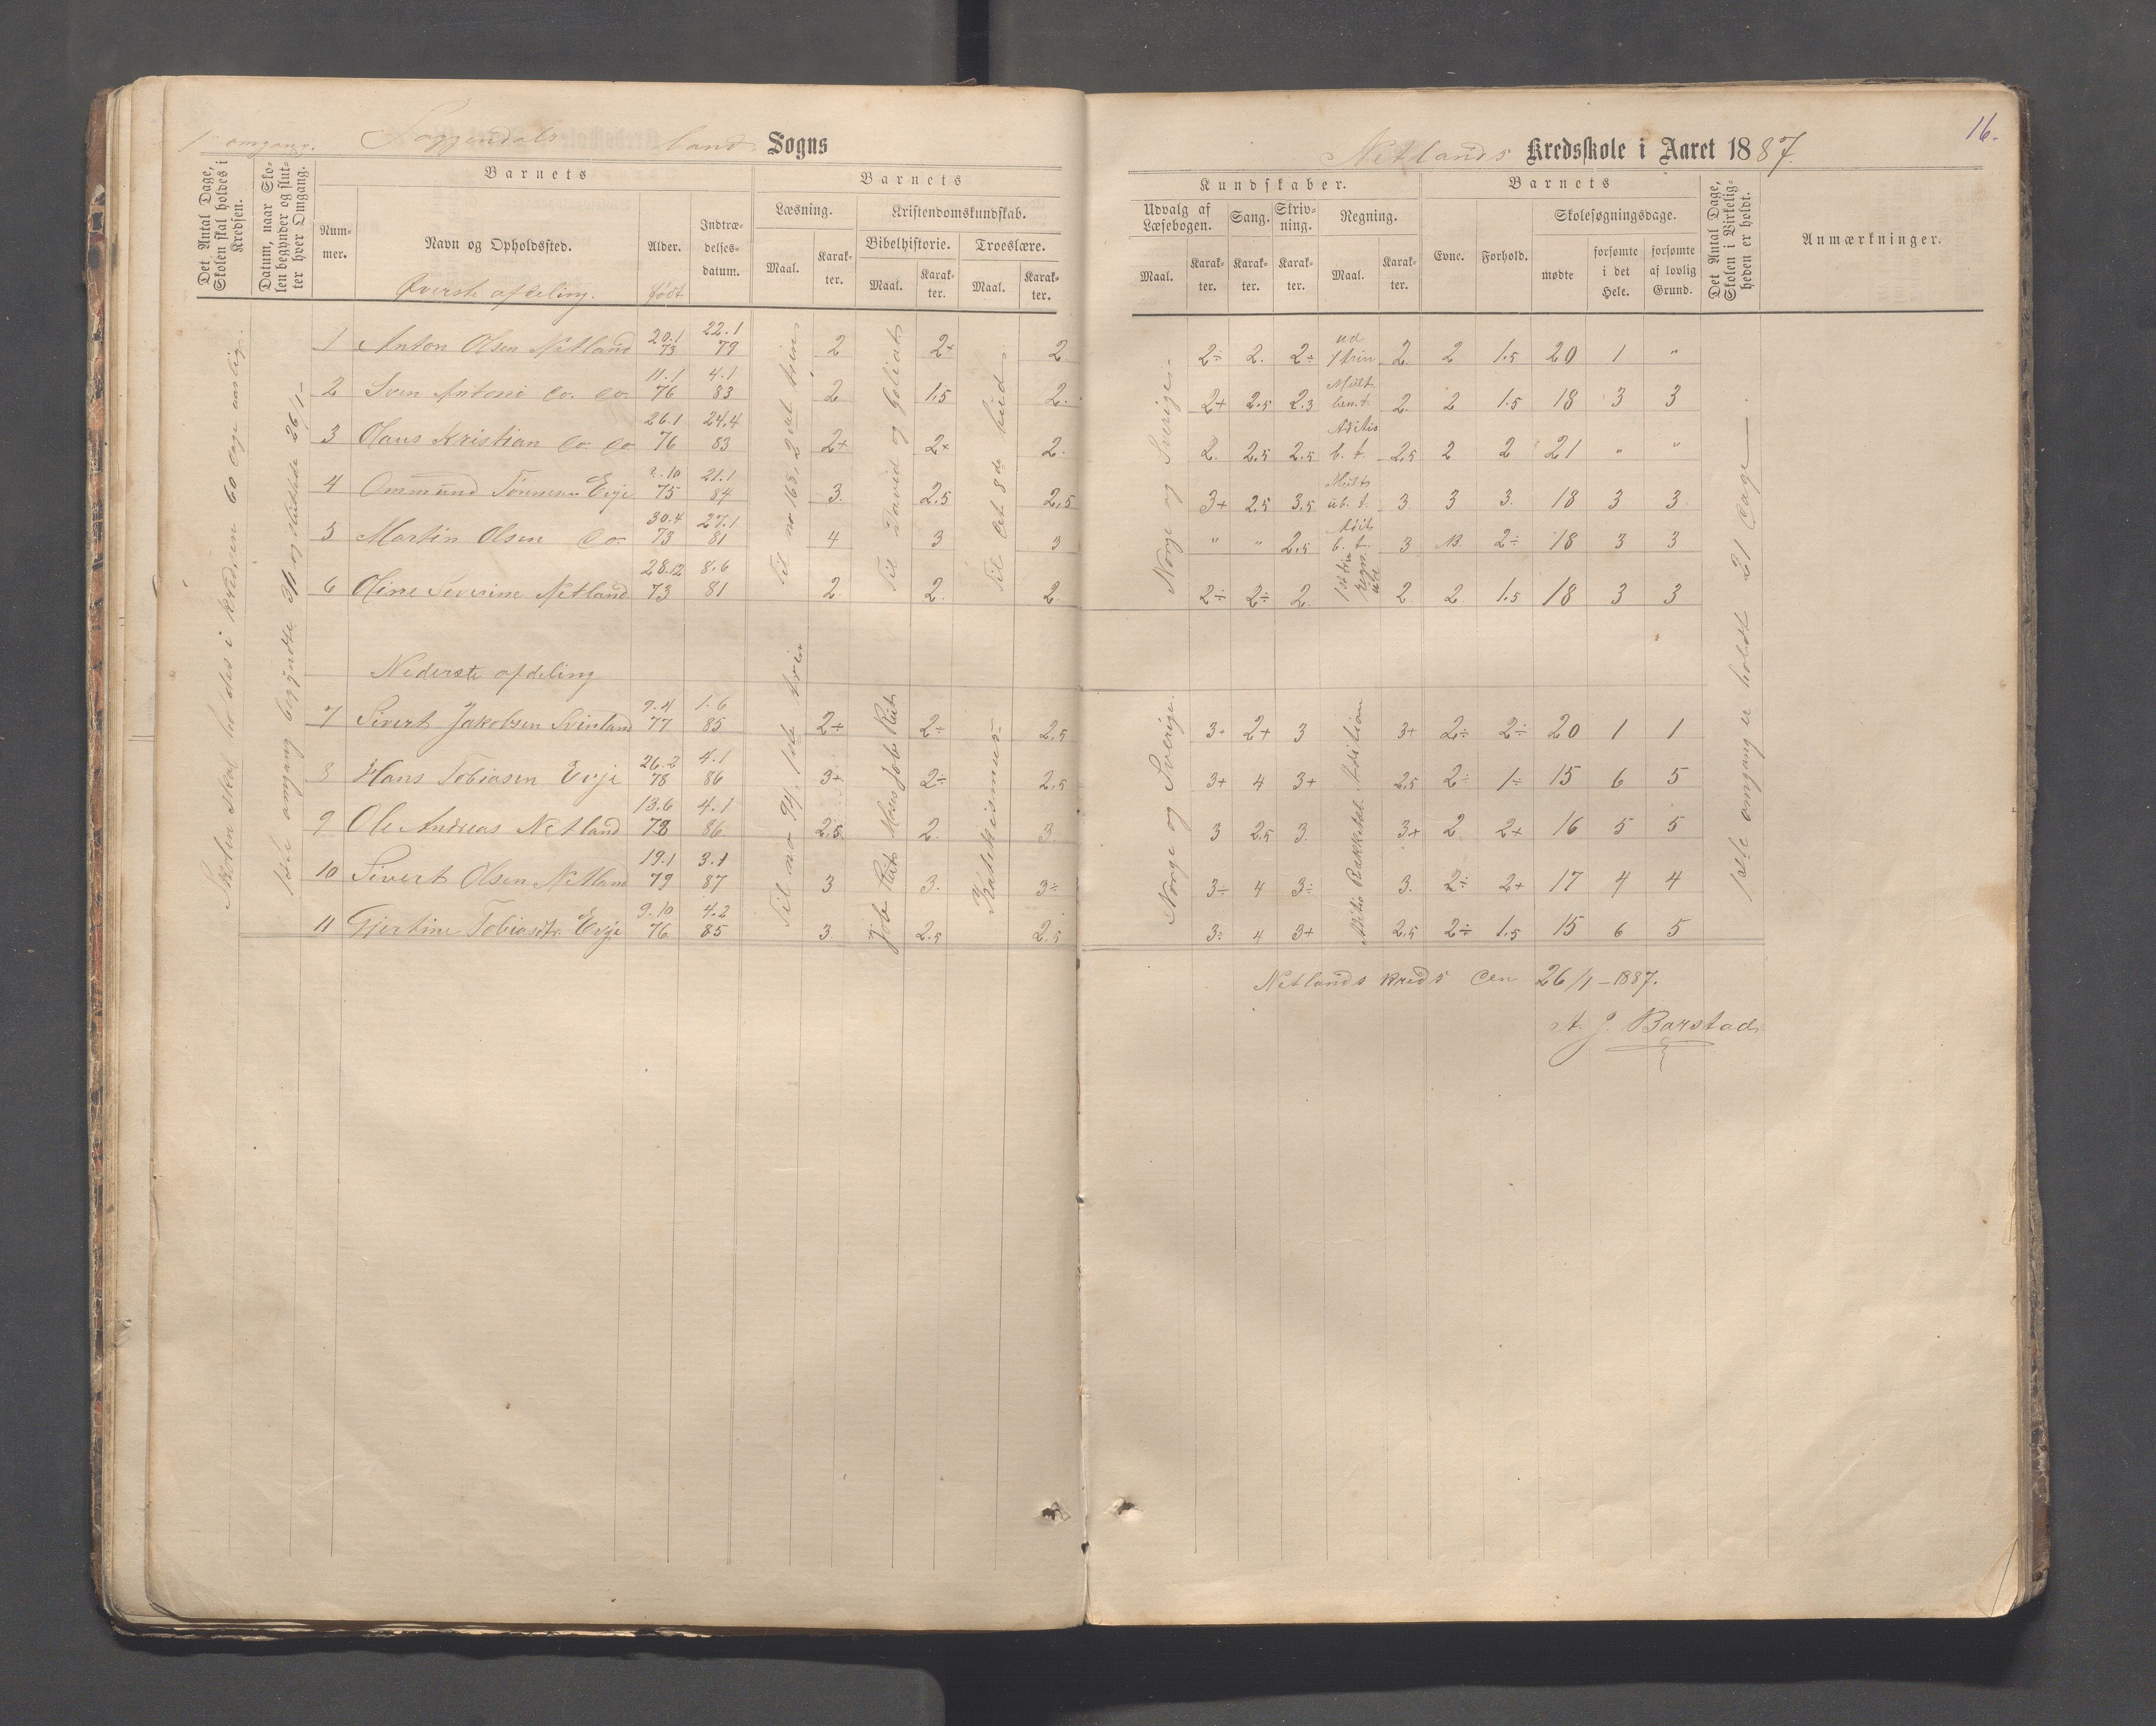 1ste omgang. Soggendals land Sogns
Netlands Kredsskole i Aaret 1887.
16.
Det Antal Dage, Skolen skal holdes i Kredsen.
Datum, naar Skolen begynder og slutter hver Omgang.
Barnets
Nummer.
Navn og Opholdssted.
Alder.
Indtrædelsesdatum.
Øverste afdeling.
født
Barnets
Læsning.
Maal.
Karakter.
Kristendomskundskab.
Bibelhistorie.
Maal.
Karakter.
Troeslære.
Maal.
Karakter.
Kundskaber.
Udvalg af Læsebogen.
Maal.
Karakter.
Sang.
Karakter.
Skrivning.
Karakter.
Regning.
Maal.
Karakter.
Barnets
Evne.
Forhold.
Skolesøgningsdage.
mødte
forsømte i det Hele.
forsømte af lovlig Grund.
Det Antal Dage, Skolen i Virkeligheden er holdt.
Anmærkninger.
Skolen skal holdes i kredsen 60 dage aarlig.
1ste omgang begyndte 3/1 og sluttede 26/1 -
Til no 168, 2det trin
Til David og Goliat
Til det 8de bud
Norge og Sverige.
1 Anton Olsen Netland 20.1 73 22.1 79 2 2+ 2 2÷ 2. 2÷ ud 1 trin 2. 2 1.5 20 1 "
2 Sven Antoni do. do. 11.1 76 4.1 83 2 1.5 2. 2+ 2.5 2.3 Mult. ben. t. 2. 2 1.5 18 3 3
3 Olaus Kristian do. do 26.1 76 24.4 83 2+ 2+ 2. 2. 2.5 2.5 Aditio b. t. 2.5 2 2 21 " "
4 Ommund Tønnesen Evje 2.10 75 21.1 84 3. 2.5 2.5 3+ 2.5 3.5 Mult ub. t. 3. 3 3. 18 3 3
5 Martin Olsen do. 30.4 73 27.1 81 4 3 3 " " 2.5 Adit b. t. 3 13. 2÷ 18 3 3
6 Oline Severine Netland 28.12 73 8.6 81 2. 2. 2. 2÷ 2÷ 2. 1st trin regn. ude 2. 2. 1.5 18 3 3
Nederste afdeling
Til no 94, 1ste trin
Moses Job Rut
Job Rut
Katekismus
Norge og Sverige.
Rækketal Adition
Aditio
7 Sivert Jakobsen Svinland 9.4 77 1.6 85 2÷ 2÷ 2.5 3+ 2+ 3 3+ 2÷ 2÷ 20 1 1
8 Hans Tobiasen Evje 26.2 78 4.1 86 3+ 2÷ 2.5 3+ 4 3+ 2.5 2÷ 1÷ 15 6 5
9 Ole Andreas Netland 13.6 78 4.1 86 2.5 2. 3. 3 2.5 3. 3+ 2. 2+ 16 5 5
10 Sivert Olsen Netland 19.1 79 3.1 87 3 3. 3÷ 3÷ 4 3÷ 3. 2÷ 2+ 17 4 4
11 Gjertine Tobiasdtr. Evje 9.10 76 4.2 85 3. 2.5 2.5 3÷ 4 3+ 2.5 2÷ 1.5 15 6 5
1ste omgang er holdt 21 dage
Netlands kreds den 26/1 - 1887.
A J. Barstad